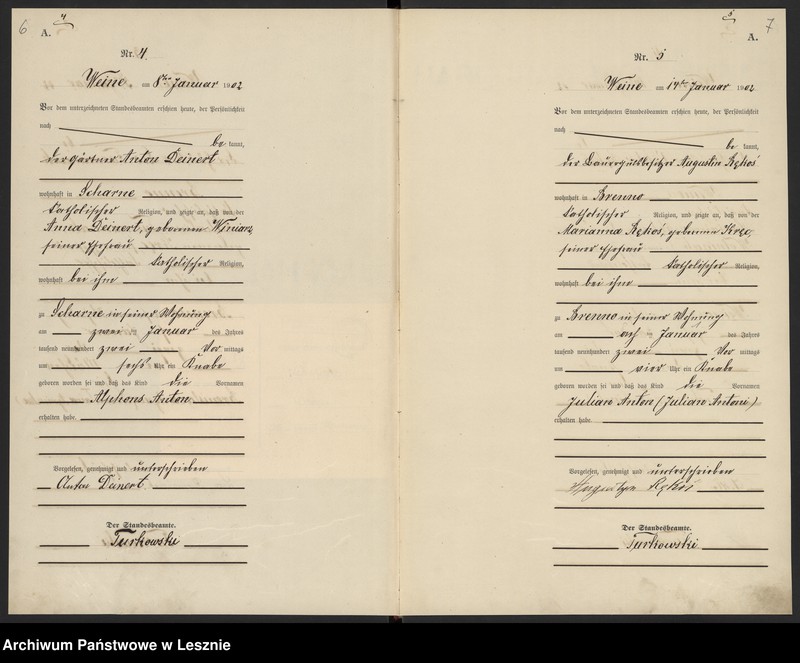 6
4
A.
Nr. 4.
Weine, am 8ten Januar 1902
Vor dem unterzeichneten Standesbeamten erschien heute, der Persönlichkeit
nach
be kannt,
der Gärtner Anton Deinert
wohnhaft in Scharne
katholischer Religion, und zeigte an, daß von der
Anna Deinert, geborenen
seiner Ehefrau
katholischer Religion,
wohnhaft bei ihm
zu Scharne in seiner Wohnung
am zwei ten Januar des Jahres
tausend neunhundert zwei Vor mittags
um sechs Uhr ein Knabe
geboren worden sei und daß das Kind die Vornamen
Alphons Anton
erhalten habe.
Vorgelesen, genehmigt und unterschrieben
Anton Deinert
Der Standesbeamte.
Turkowski
5
7
A.
Nr. 5
Weine am 14ten Januar 1902
Vor dem unterzeichneten Standesbeamten erschien heute, der Persönlichkeit
nach
be kannt,
der Bauergutsbesitzer Augustin Rękoś
wohnhaft in Brenno
katholischer Religion, und zeigte an, daß von der
Marianna Rękoś, geborenen
seiner Ehefrau
katholischer Religion,
wohnhaft bei ihm
zu Brenno in seiner Wohnung
am ach ten Januar des Jahres
tausend neunhundert zwei Vor mittags
um vier Uhr ein Knabe
geboren worden sei und daß das Kind die Vornamen
Julian Anton (Julian Antoni)
erhalten habe.
Vorgelesen, genehmigt und unterschrieben
Rękoś
Der Standesbeamte.
Turkowski
Archiwum Państwowe w Lesznie